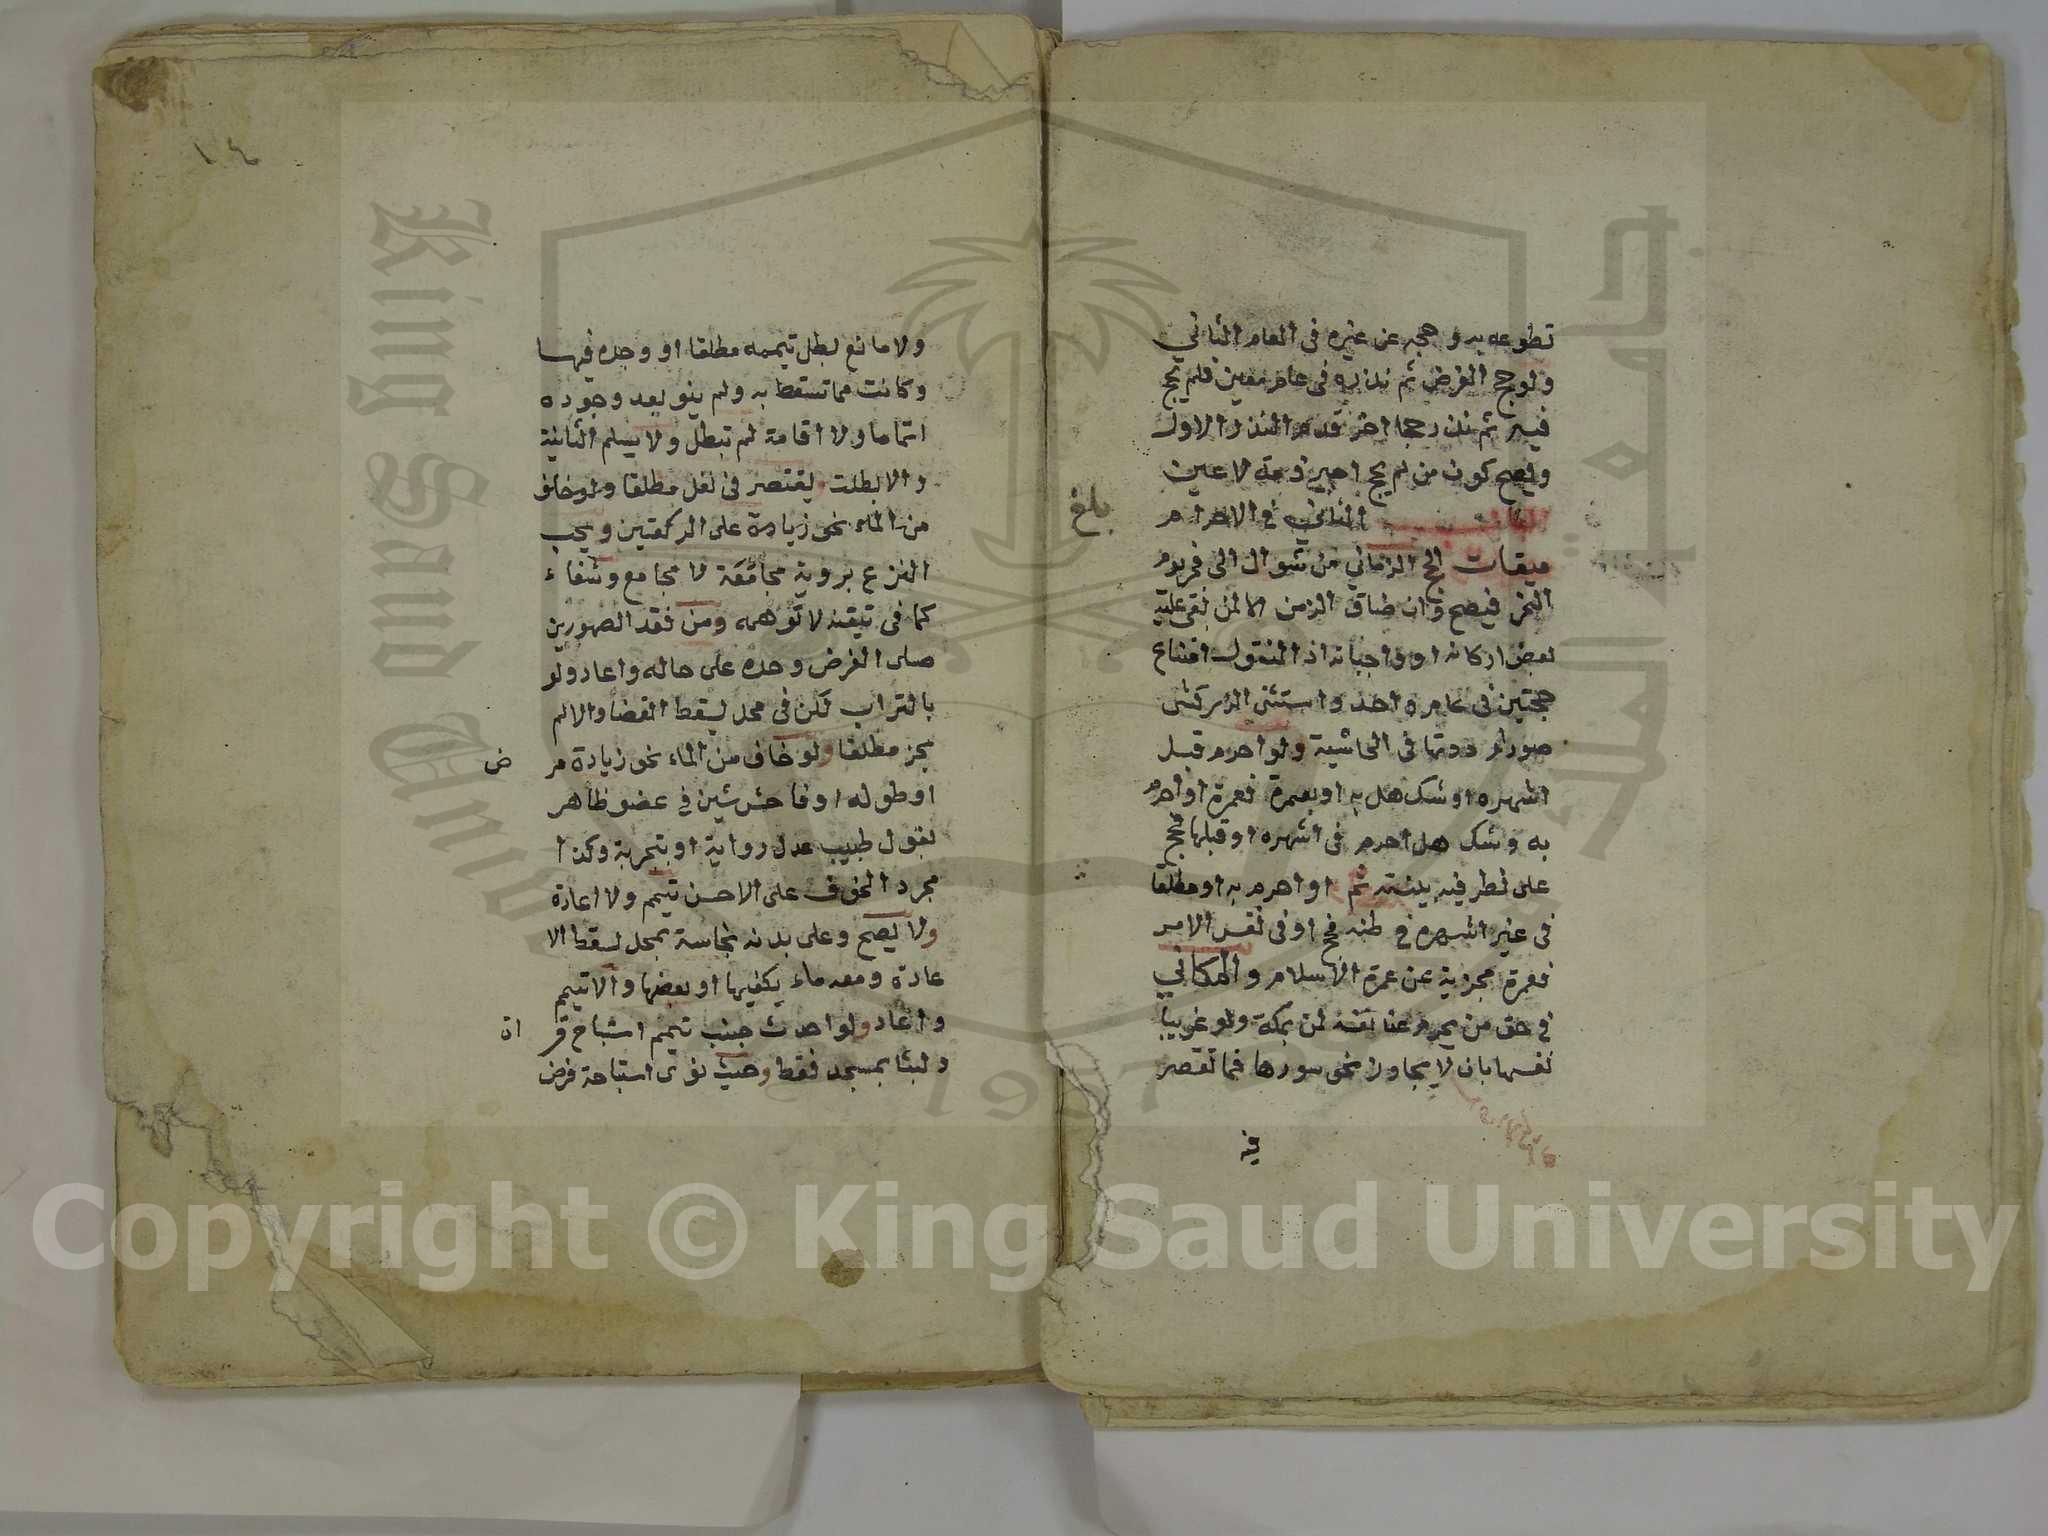 تطوعه به وحجه عن غيره في العام الثاني
ولو حج الفرض ثم نذره في عام معين فلم يحج
فيه ثم نذر حجا اخر قدم النذر الاول
ويصح كون من لم يحج اجير ذمة لا عين
الباب الثاني في الاحرام
بلغ
ميقات الحج الزماني من شوال الى فجر يوم
النحر فيصح وان ضاق الزمن الا لمن بقي عليه
بعض اركانه او واجباته اذ المنقول امتناع
حجتين في عام واحد واستثنى الزركشي
صورا رددتها في الحاشية ولو احرم قبل
اشهره او شك هل به او بعمرة فعمرة او احرم
به وشك هل احرم في اشهره او قبلها فحج
على نظر فيه بينته ثم او احرم به او مطلقا
في غير اشهره في ظنه فحج او في نفس الامر
فعمرة مجزية عن عمرة الاسلام والمكاني
في حق من يحرم عن نفسه لمن بمكة ولو غريبا
نفسها بان لا يجاوز نحو سورها فما تقصر
فيه
١٠٤
ولا مانع بطل تيممه مطلقا او وجده فيها
وكانت مما تسقط به ولم ينو بعد وجوده
اتماما ولا اقامة لم تبطل ولا يسلم الثانية
والا بطلت ويقتصر في نفل مطلقا ولو خاف
من الماء نحو زيادة على الركعتين ويجب
النزع بروية مجامعة لا مجامع وشفاء
كما في تيقنه لا توهمه ومن فقد الطهورين
صلى الفرض وحده على حاله واعاد ولو
بالتراب لكن في محل يسقط القضا والا لم
يجز مطلقا ولو خاف من الماء نحو زيادة مر
ض
او طوله او فاحش شين في عضو ظاهر
بقول طبيب عدل رواية او بتجربة وكذا
مجرد الخوف على الاحسن تيمم ولا اعادة
ولا يصح وعلى بدنه نجاسة بمحل يسقط الا
عادة ومعه ماء يكفيها او بعضها والا تيمم
واعاد ولو احدث جنب تيمم استباح قر
اة
ولبثا بمسجد فقط وحيث نوى استباحة فرض
Copyright © King Saud University
King Saud University
جامعة الملك سعود
1957